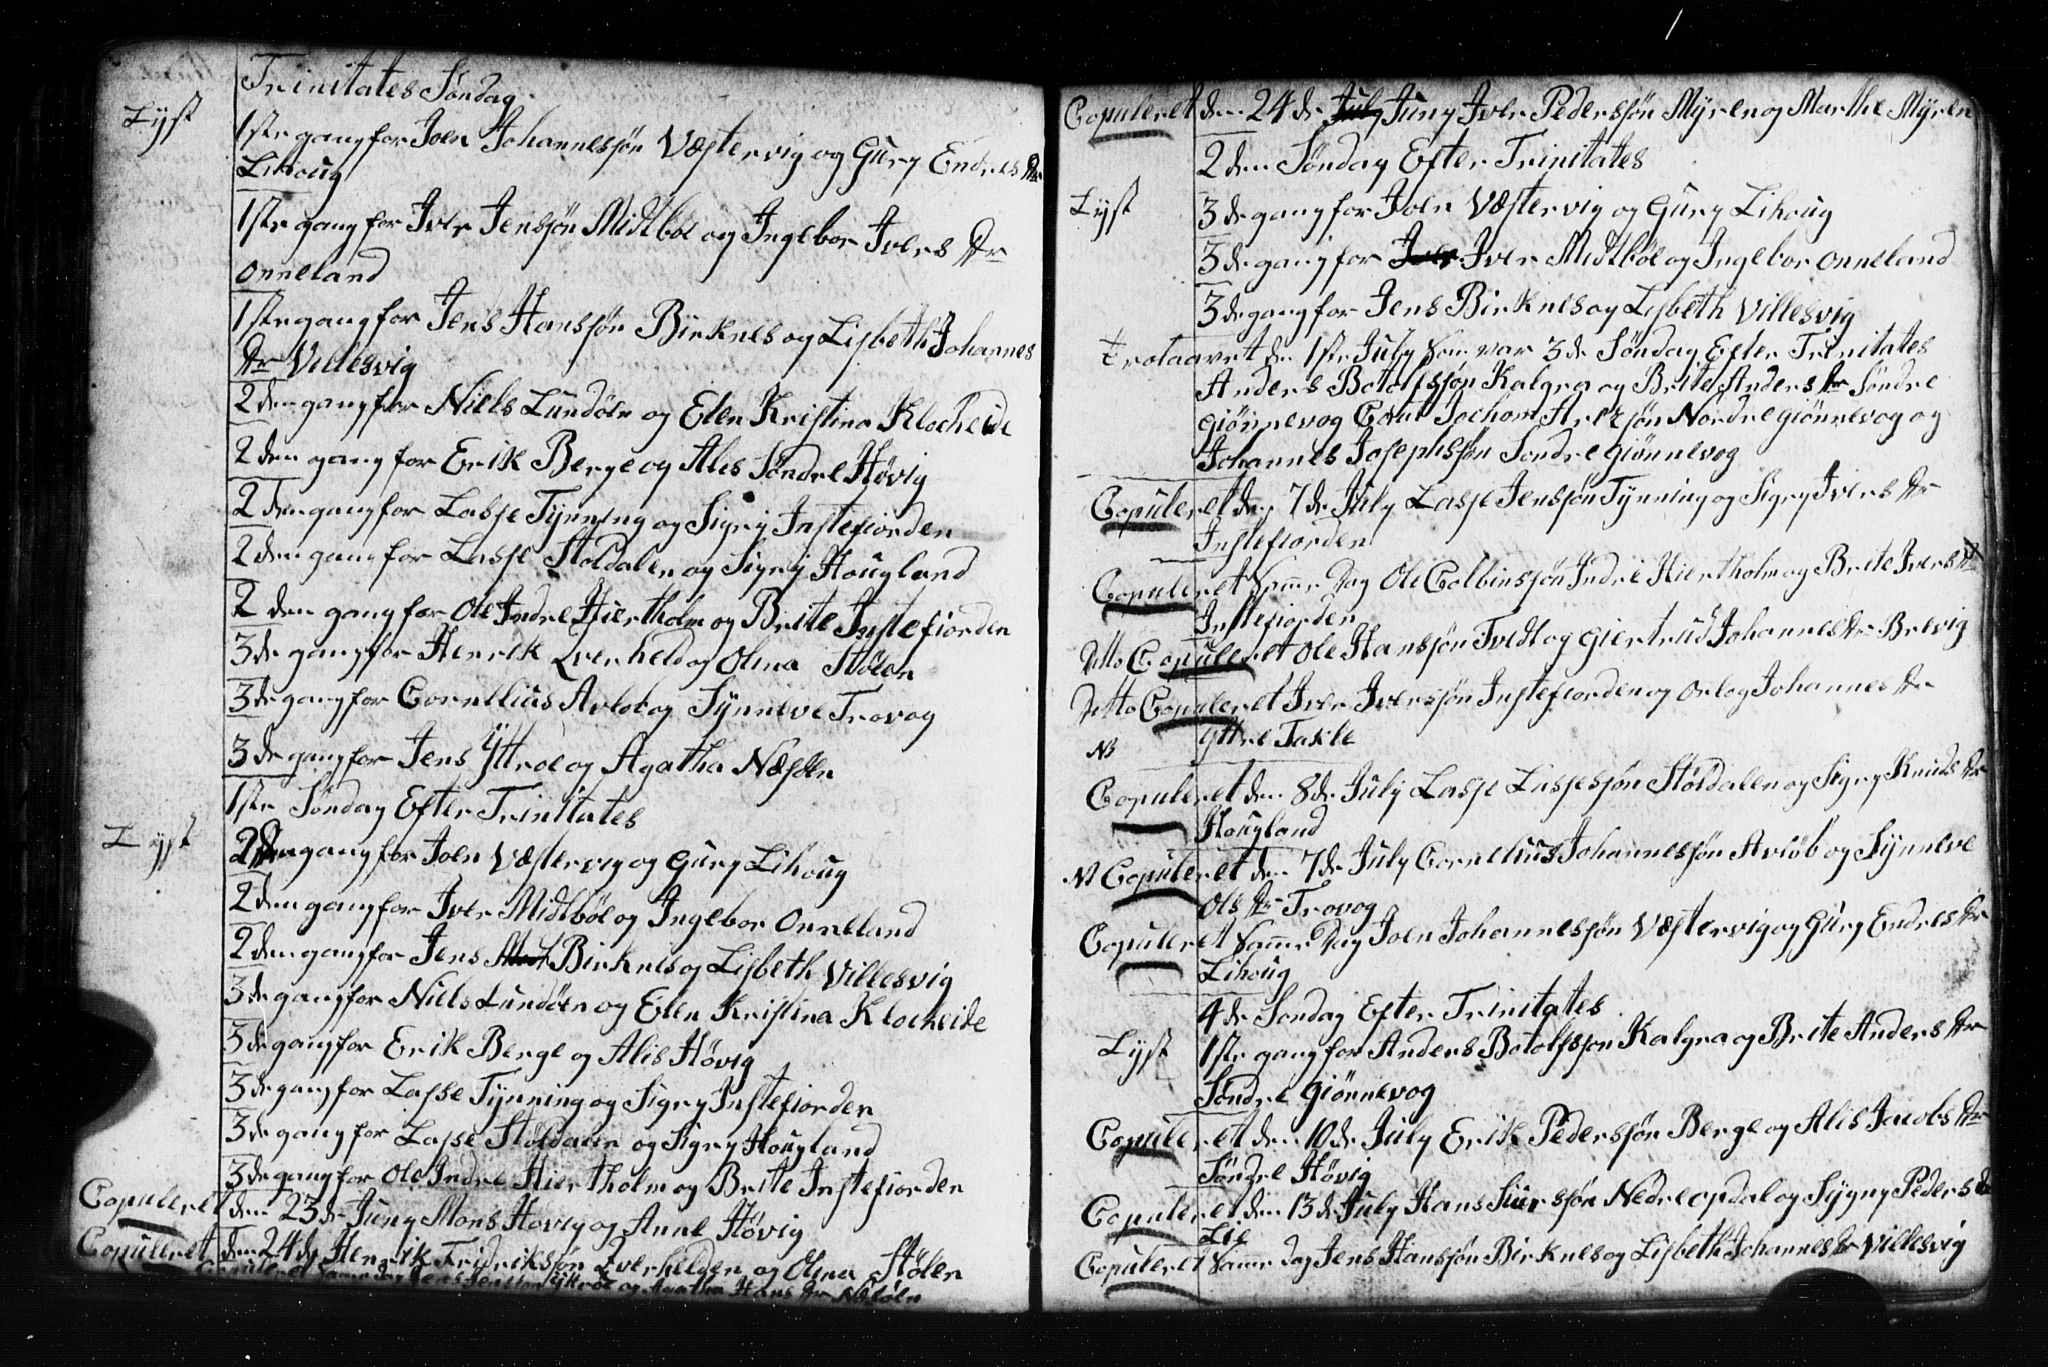 Trinitates Søndag
Lyst
1ste gang for Joen Johannessjøn Væstervig og Gury Endres dr
Lihoug
1ste gang for Iver Jenssjøn Midtbøe og Ingebor Ivers dr
Onneland
1ste gang for Jens Hanssjøn Birknes og Lisbeth Johannes
dr Villesvig
2den gang for Niels Lundøen og Elen Kristina Klocheide
2den gang for Erik Berge og Ales Søndre Høvig
2den gang for Lasse Tynning og Sigry Instefiorden
2den gang for Lasse Støldalen og Sigry Hougland
2den gang for Ole Indre Hiertholm og Brite Instefiorden
3de gang for Henrik Qverheld og Olina Støten
3de gang for Cornellius og Synneve Trovog
3de gang for Jens Yttrøe og Agatha Næsøen
1ste Søndag Efter Trinitates
Lyst
2den gang for Joen Væstervig og Gury Lihoug
2den gang for Iver Midtbøe og Ingebor Onneland
2den gang for Jens Birknes og Lisbeth Villesvig
3de gang for Niels Lundøen og Elen Kristina Klocheide
3de gang for Erik Berge og Alis Høvig
3de gang for Lasse Tynning og Sigry Instefiorden
3de gang for Lasse Støldalen og Sigry Hougland
3de gang for Ole Indre Hiertholm og Brite Instefiorden
Copuleret den 23de Juny Mons Høvig og Anne Høvig
Copuleret den 24de Henrik Fridrikssjøn Qverhelden og Olina Støten
Copuleret Samme Dag Jens og Agatha Hans dr Næsøen
Copuleret den 24de July Juny Iver Pederssjøn Myren og Marthe Myren
2den Søndag Efter Trinitates
Lyst
3de gang for Joen Væstervig og Gury Lihoug
3de gang for Iver Midtbøe og Ingebor Onneland
3de gang for Jens Birknes og Lisbeth Villesvig
trolaavet den 1ste July som var 3de Søndag Efter Trinitates
Anders Botolfssjøn Kalgra og Brite Anders dr Søndre
Giønnevog Cau: Jochom sjøn Nordre Giønnevog og
Johannes Josephssjøn Søndre Giønnevog
Copuleret den 7de July Lasse Jenssjøn Tynning og Sigry Ivers dr
Instefiorden
Copuleret Samme Dag Ole Colbinssjøn Indre Hiertholm og Brite Ivers dr
Instefiorden
Ditto Copuleret Ole Hanssjøn Tvedt og Giertrud Johannes dr Brevig
Ditto Copuleret Iver Iverssjøn Instefiorden og Orlog Johannes dr
Yttre Takle
NB
Copuleret den 8de July Lasse Lassessjøn Støldalen og Sigry Knuds dr
Hougland
NB Copuleret den 7de July Cornelius Johannessjøn og Synneve
Ols dr Trovog
Copuleret Samme Dag Joen Johannessjøn Væstervig og Gury Endres dr
Lihoug
4de Søndag Efter Trinitates
Lyst
1ste gang for Anders Botolfssjon Kalgra og Brite Anders dr
Søndre Giønnevog
Copuleret den 10de July Erik Pederssjøn Berge og Alis Jacobs dr
Søndre Høvig
Copuleret den 13de July Hans Siurssjøn Nedre Opdal og Sygny Peders dr
Lie
Copuleret Samme Dag Jens Hanssjøn Birknes og Lisbeth Johannes dr Villesvig